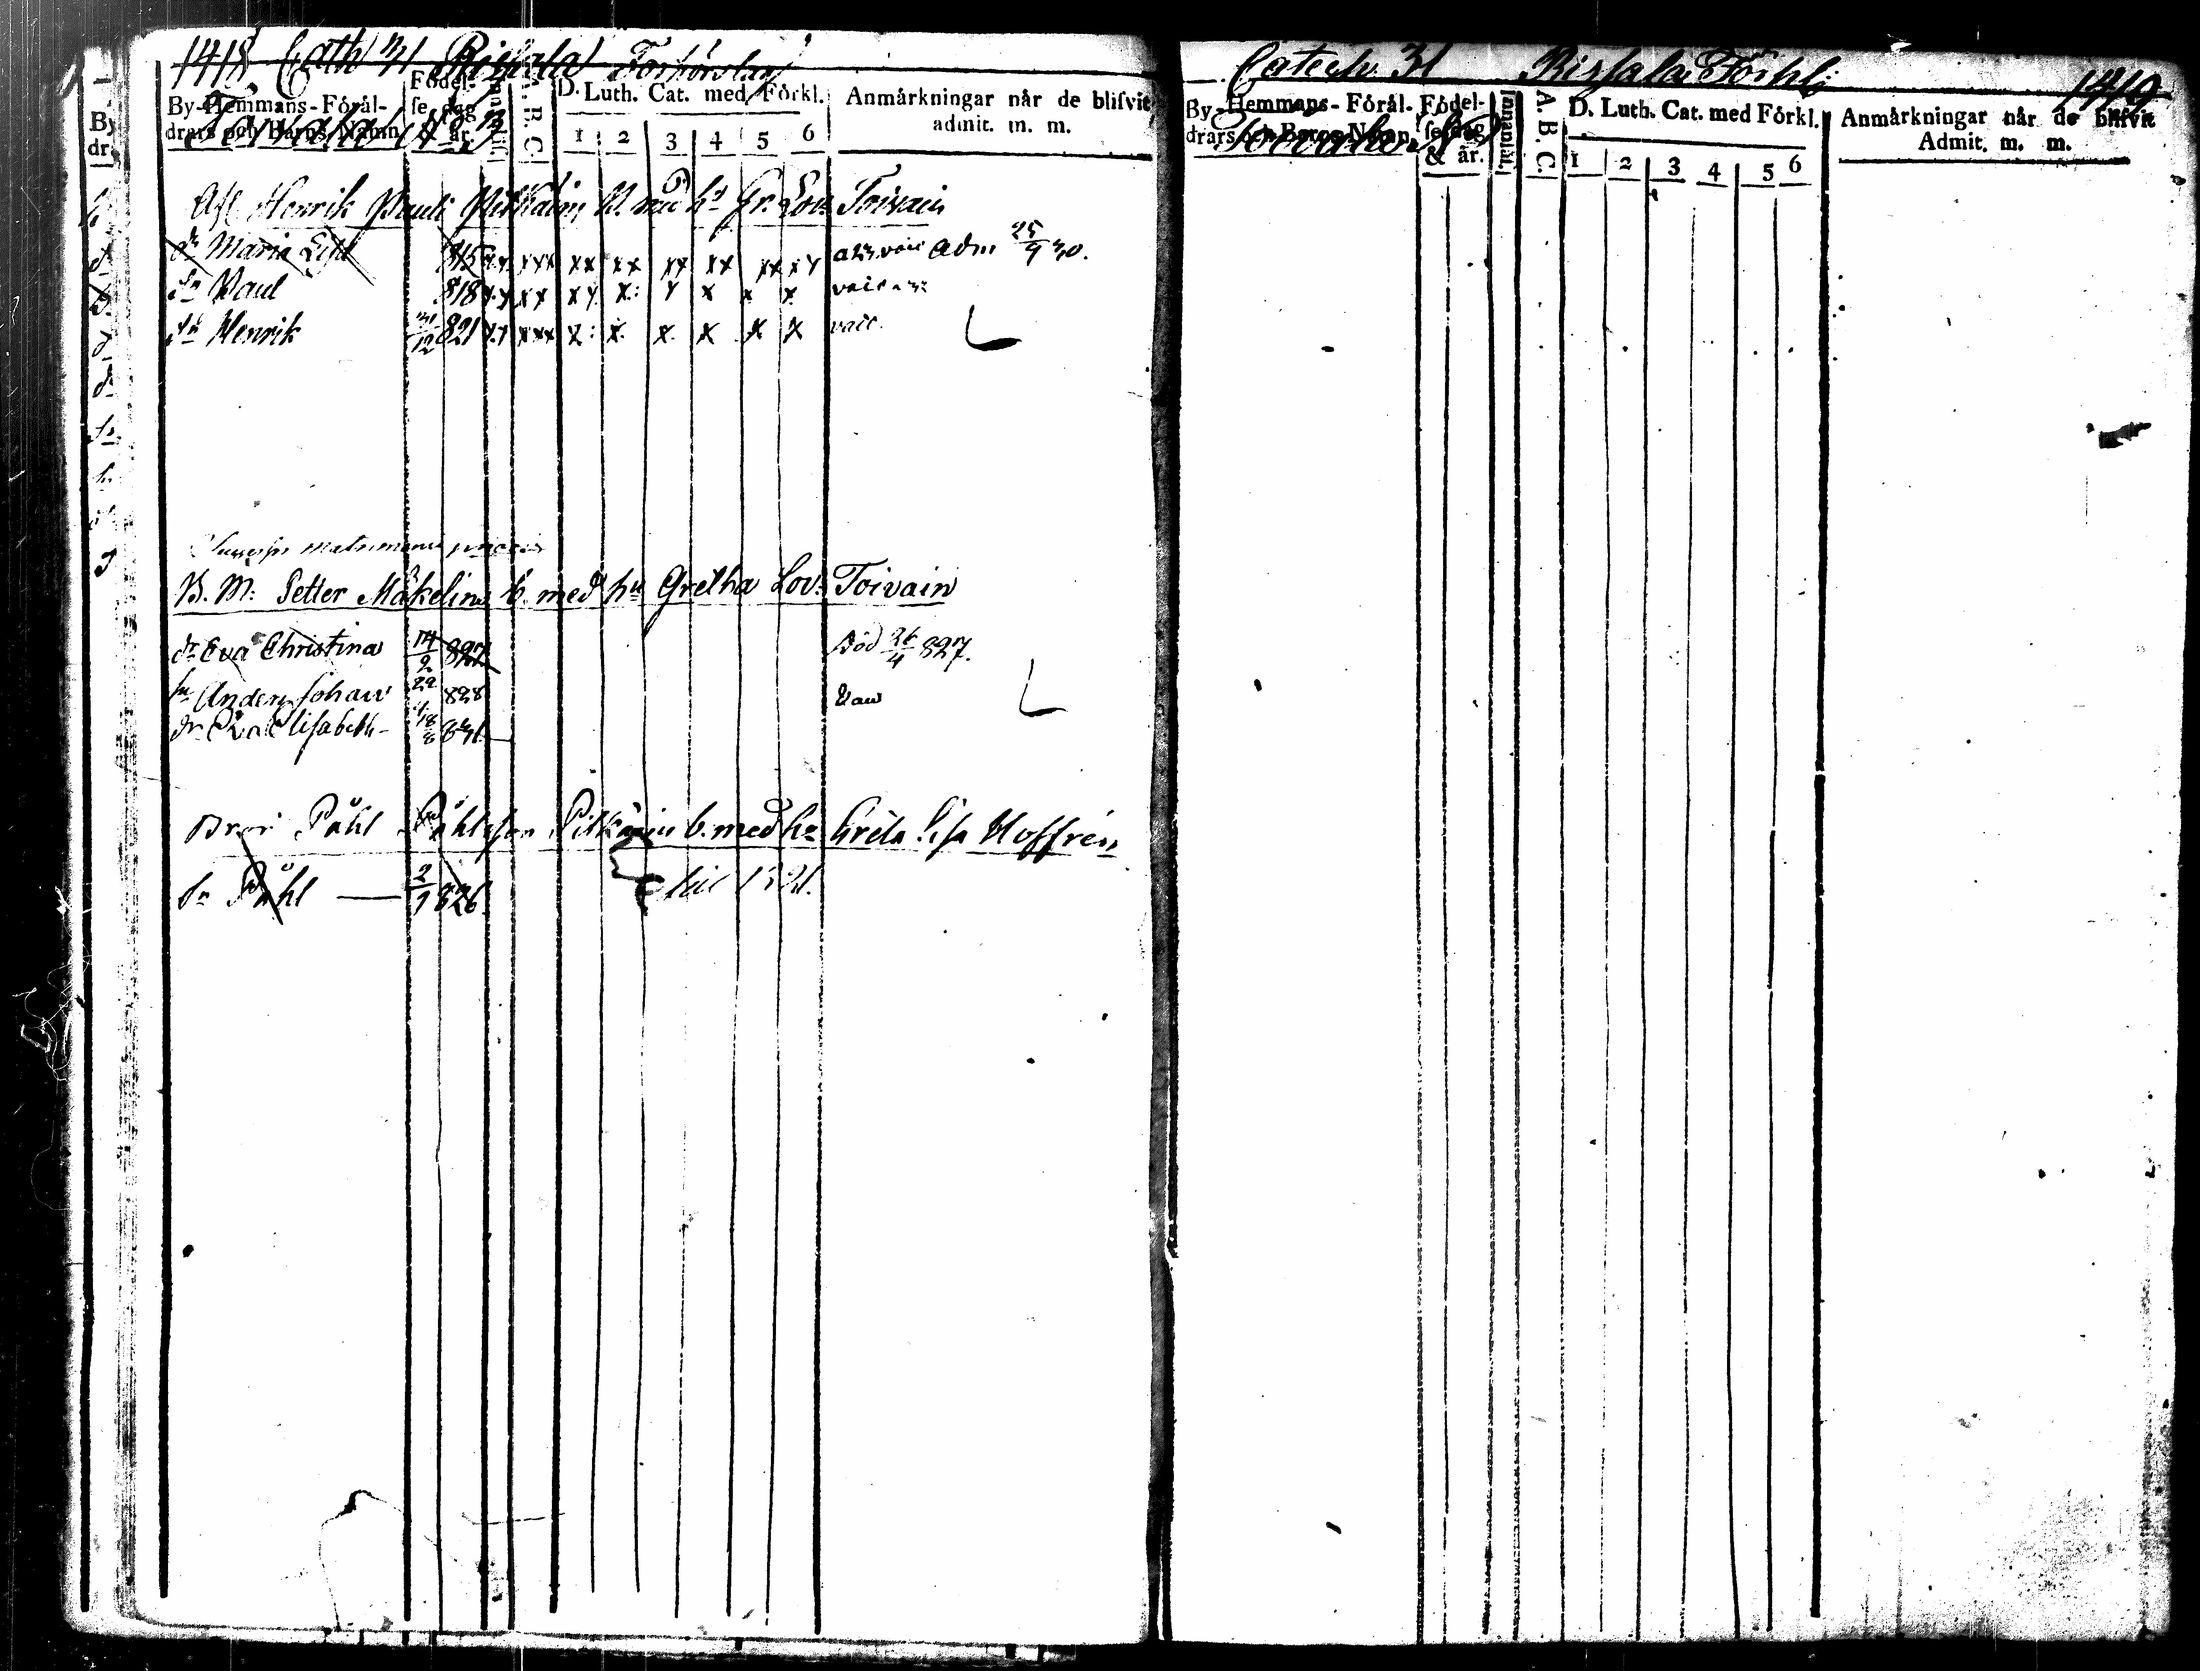 1418 Cath 31 Rissala Förhörslag
By-Hemmans-Förål-
drars och Barns Namn
Födel-
se-dag
& år.
A. B. C.
D. Luth. Cat. med Förkl.
1 2 3 4 5 6
Anmärkningar når de blifvit
admit. m. m.
Toivala N 13
Afl. Henrik Pauli Pitkäin b. med h. Gr. Lov. Toivain
dr Maria Lisa 815 x x x x x x x x x x x x x x x x x vacc Adm 25/9 30.
sn Paul 818 x x x x x x x: x x x x vacc
sn Henrik 31/12 821 x x x x x x: x. x. x x x vacc.
matrimonii
B. M: Petter Mäkelin b. med hu Gretha Lov: Toivain
dr Eva Christina 14/2 827 Död 26/4 827.
sn Anders Johan 29/4 828 Vacc
dr Elisabeth 18/8 831
Bror Påhl Påhlsson Pitkänin b. med hu Greta Lisa Hoffrén
sn Påhl — 2/9 826.
Catech. 31 Rissala Förhl:
1419
By-Hemmans-Förål-
drars och Barns Namn
Födel-
se-dag
& år.
Innantäl
A. B. C.
D. Luth. Cat. med Förkl.
1 2 3 4 5 6
Anmärkningar når de blifvit
Admit. m. m.
Toivala N